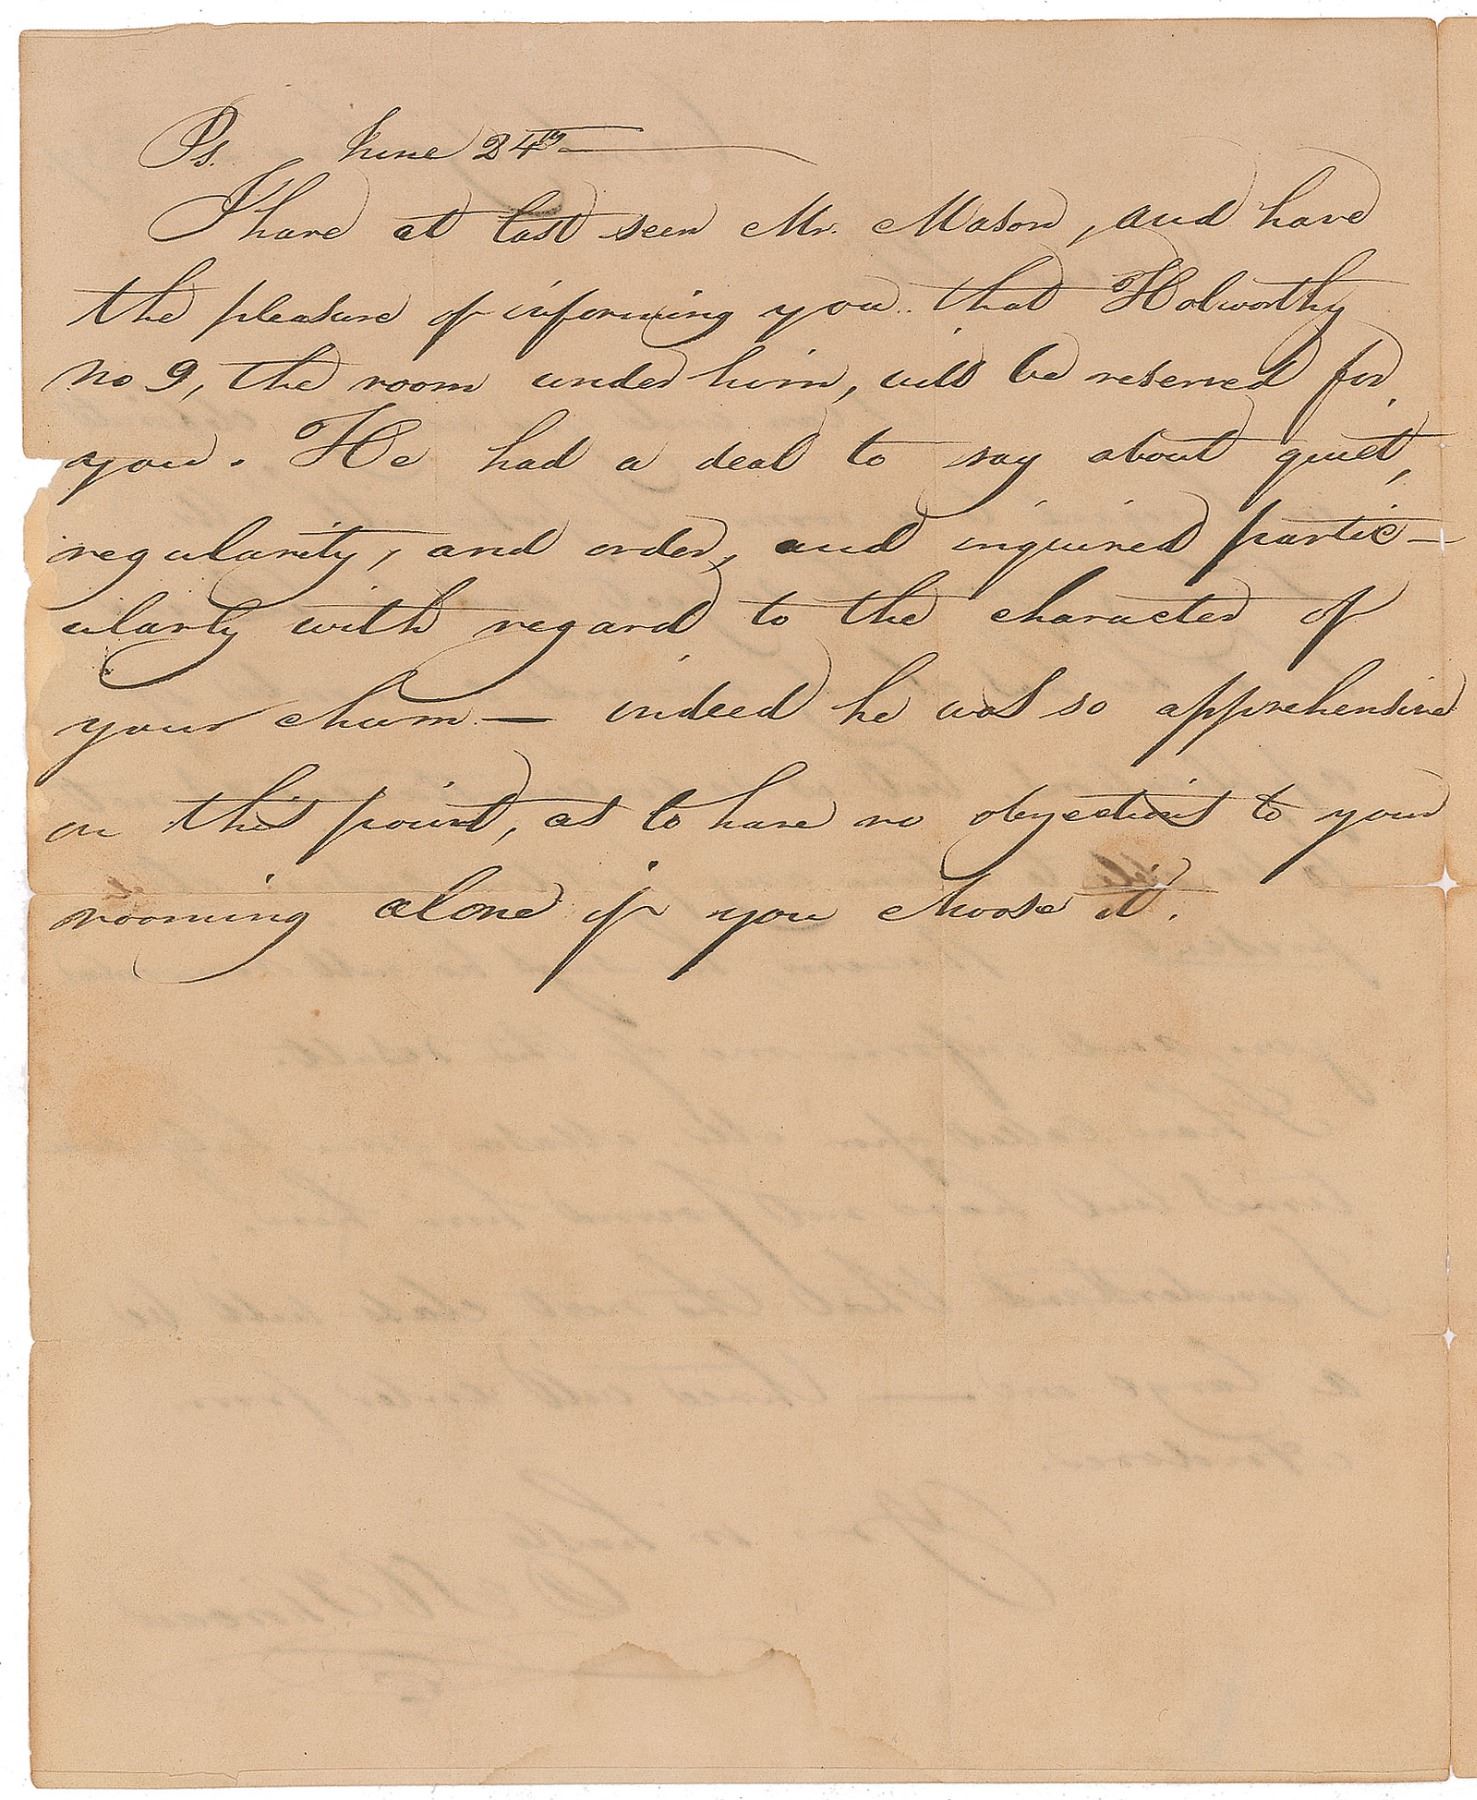 Ps. June 24th
I have at last seen Mr. Mason, and have
the pleasure of informing you that Holworthy
no 9, the room under him, will be reserved for
you. He had a deal to say about quiet,
regularity, and order, and inquired partic-
ularly with regard to the character of
your chum — indeed he was so apprehensive
on this point, as to have no objections to your
rooming alone if you choose it.